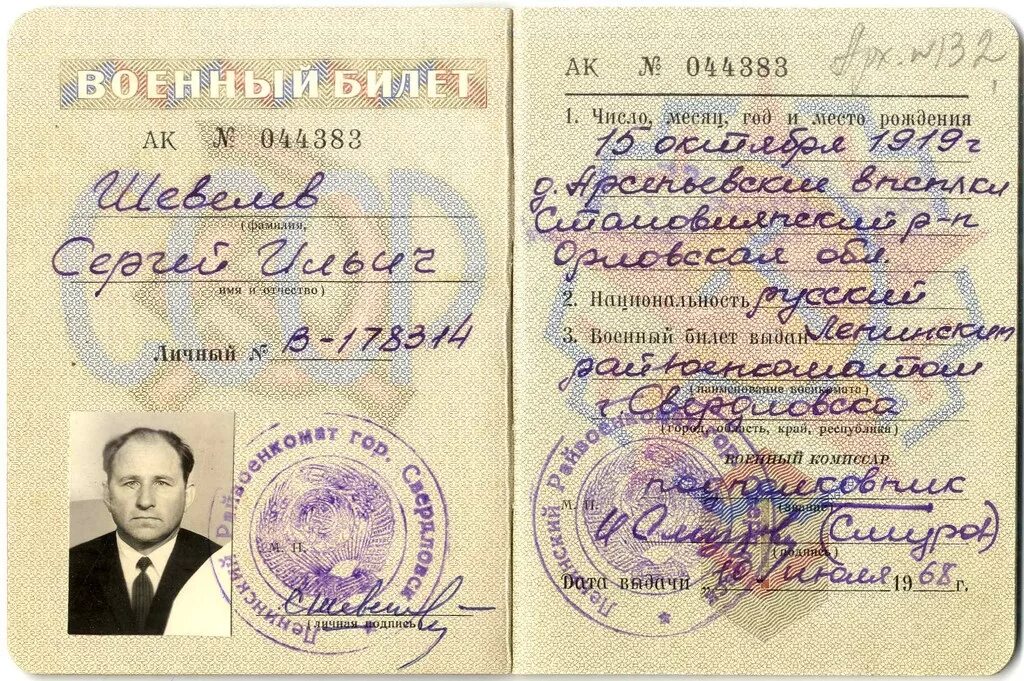 ВОЕННЫЙ БИЛЕТ
АК № 044383
Шевелев
(фамилия,
Сергей Ильич
имя и отчество)
Личный № В-178314
Ленинский Райвоенкомат гор. Свердловск
М. П.
(личная подпись)
АК № 044383
Арх. №132
1. Число, месяц, год и место рождения
15 октября 1919 г
д. Арсеньевские выселки
Становлянский р-н
Орловская обл.
2. Национальность русский
3. Военный билет выдан Ленинским
райвоенкоматом
(наименование военкомата)
г. Свердловска
(город, область, край, республика)
ВОЕННЫЙ КОМИССАР
подполковник
М. П.
(звание)
Смуров (Смуров)
(подпись)
Дата выдачи „10" июля 1968 г.
Ленинский Райвоенкомат